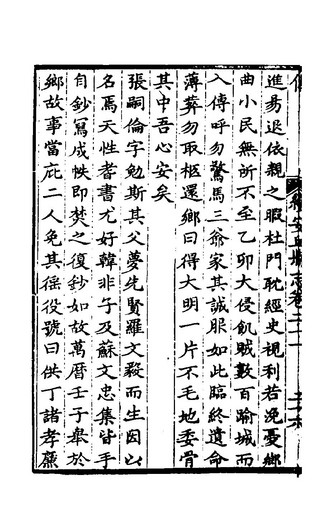 進易退依親之暇杜門耽經史視利若浼憂鄉
曲小民無所不至乙卯大侵飢賊數百踰城而
入傳呼勿驚馬三爺家其誠服如此臨終遺命
薄葬勿取柩還鄉曰得大明一片不毛地委骨
其中吾心安矣
張嗣倫字勉斯其父夢先賢羅文毅而生因以
名焉天性耆書尤好韓非子及蘇文忠集皆手
自鈔寫成帙即焚之復鈔如故萬曆壬子舉於
鄉故事當庇二人免其徭役號曰供丁諸孝廉